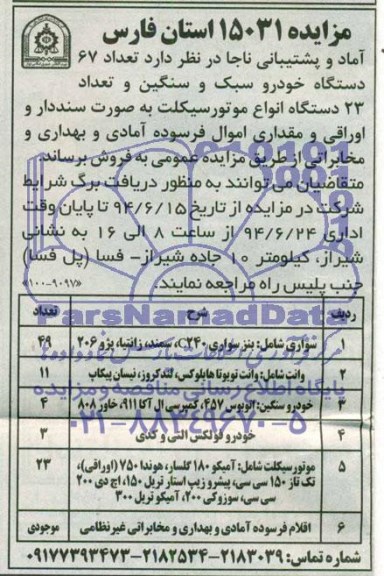 مزایده ۱۵۰۳۱ استان فارس
آماد و پشتیبانی ناجا در نظر دارد تعداد ۶۷
دستگاه خودرو سبک و سنگین و تعداد
۲۳ دستگاه انواع موتورسیکلت به صورت سنددار و
اوراقی و مقداری اموال فرسوده آمادی و بهداری و
مخابراتی از طریق مزایده عمومی به فروش برساند.
متقاضیان می‌توانند به منظور دریافت برگ شرایط
شرکت در مزایده از تاریخ ۹۴/۶/۱۵ تا پایان وقت
اداری ۹۴/۶/۲۴ از ساعت ۸ الی ۱۶ به نشانی
شیراز، کیلومتر ۱۰ جاده شیراز- فسا (پل فسا)
جنب پلیس راه مراجعه نمایند. «۹۰۹۷-۱۰۰»
ParsNamadData
پایگاه اطلاع رسانی مناقصه و مزایده
۰۲۱-۸۸۳۴۹۶۷۰-۵
ردیف شرح تعداد
۱ سواری شامل: بنز سواری C۲۴۰، سمند، زانتیا، پژو ۲۰۶ ۴۹
۲ وانت شامل: وانت تویوتا هایلوکس، لندکروز، نیسان پیکاپ ۱۱
۳ خودرو سنگین: اتوبوس ۴۵۷، کمپرسی ال آکا ۹۱۱، خاور ۸۰۸ ۴
۴ خودرو فولکس التی و کدی ۳
۵ موتورسیکلت شامل: آمیکو ۱۸۰ گلسار، هوندا ۷۵۰ (اوراقی)، ۲۳
تک تاز ۱۵۰ سی سی، پیشرو زیپ استار تریل ۱۵۰، اچ دی ۲۰۰
سی سی، سوزوکی ۲۰۰، آمیکو تریل ۳۰۰
۶ اقلام فرسوده آمادی و بهداری و مخابراتی غیرنظامی موجودی
شماره تماس: ۲۱۸۳۰۳۹-۲۱۸۲۵۳۴-۰۹۱۷۷۳۹۳۴۷۳